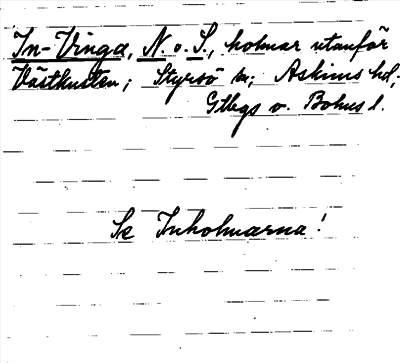 In-Vinga, N. o. S., holmar utanför
Västkusten; Styrsö sn; Askims hd;
Gtbgs o. Bohus l.
Se Inholmarna!